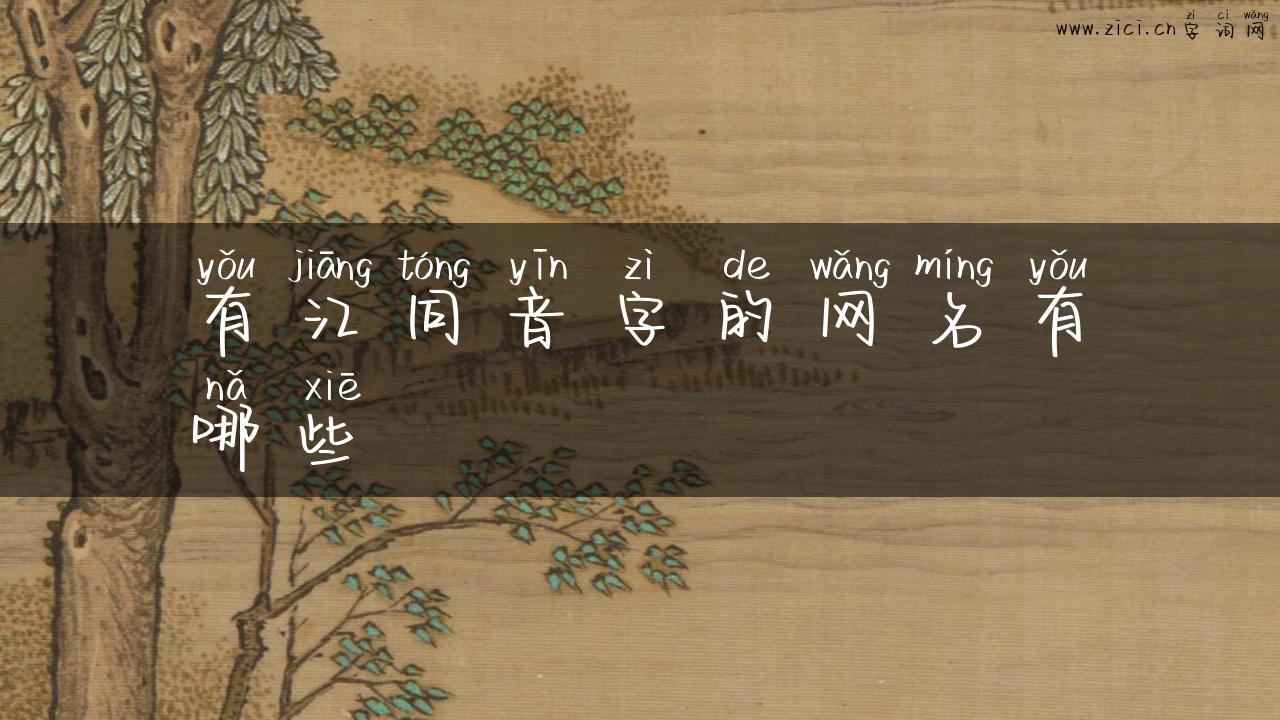 zì cí wǎng
www.zici.cn 字词网
yǒu jiāng tóng yīn zì de wǎng míng yǒu
有江同音字的网名有
nǎ xiē
哪些